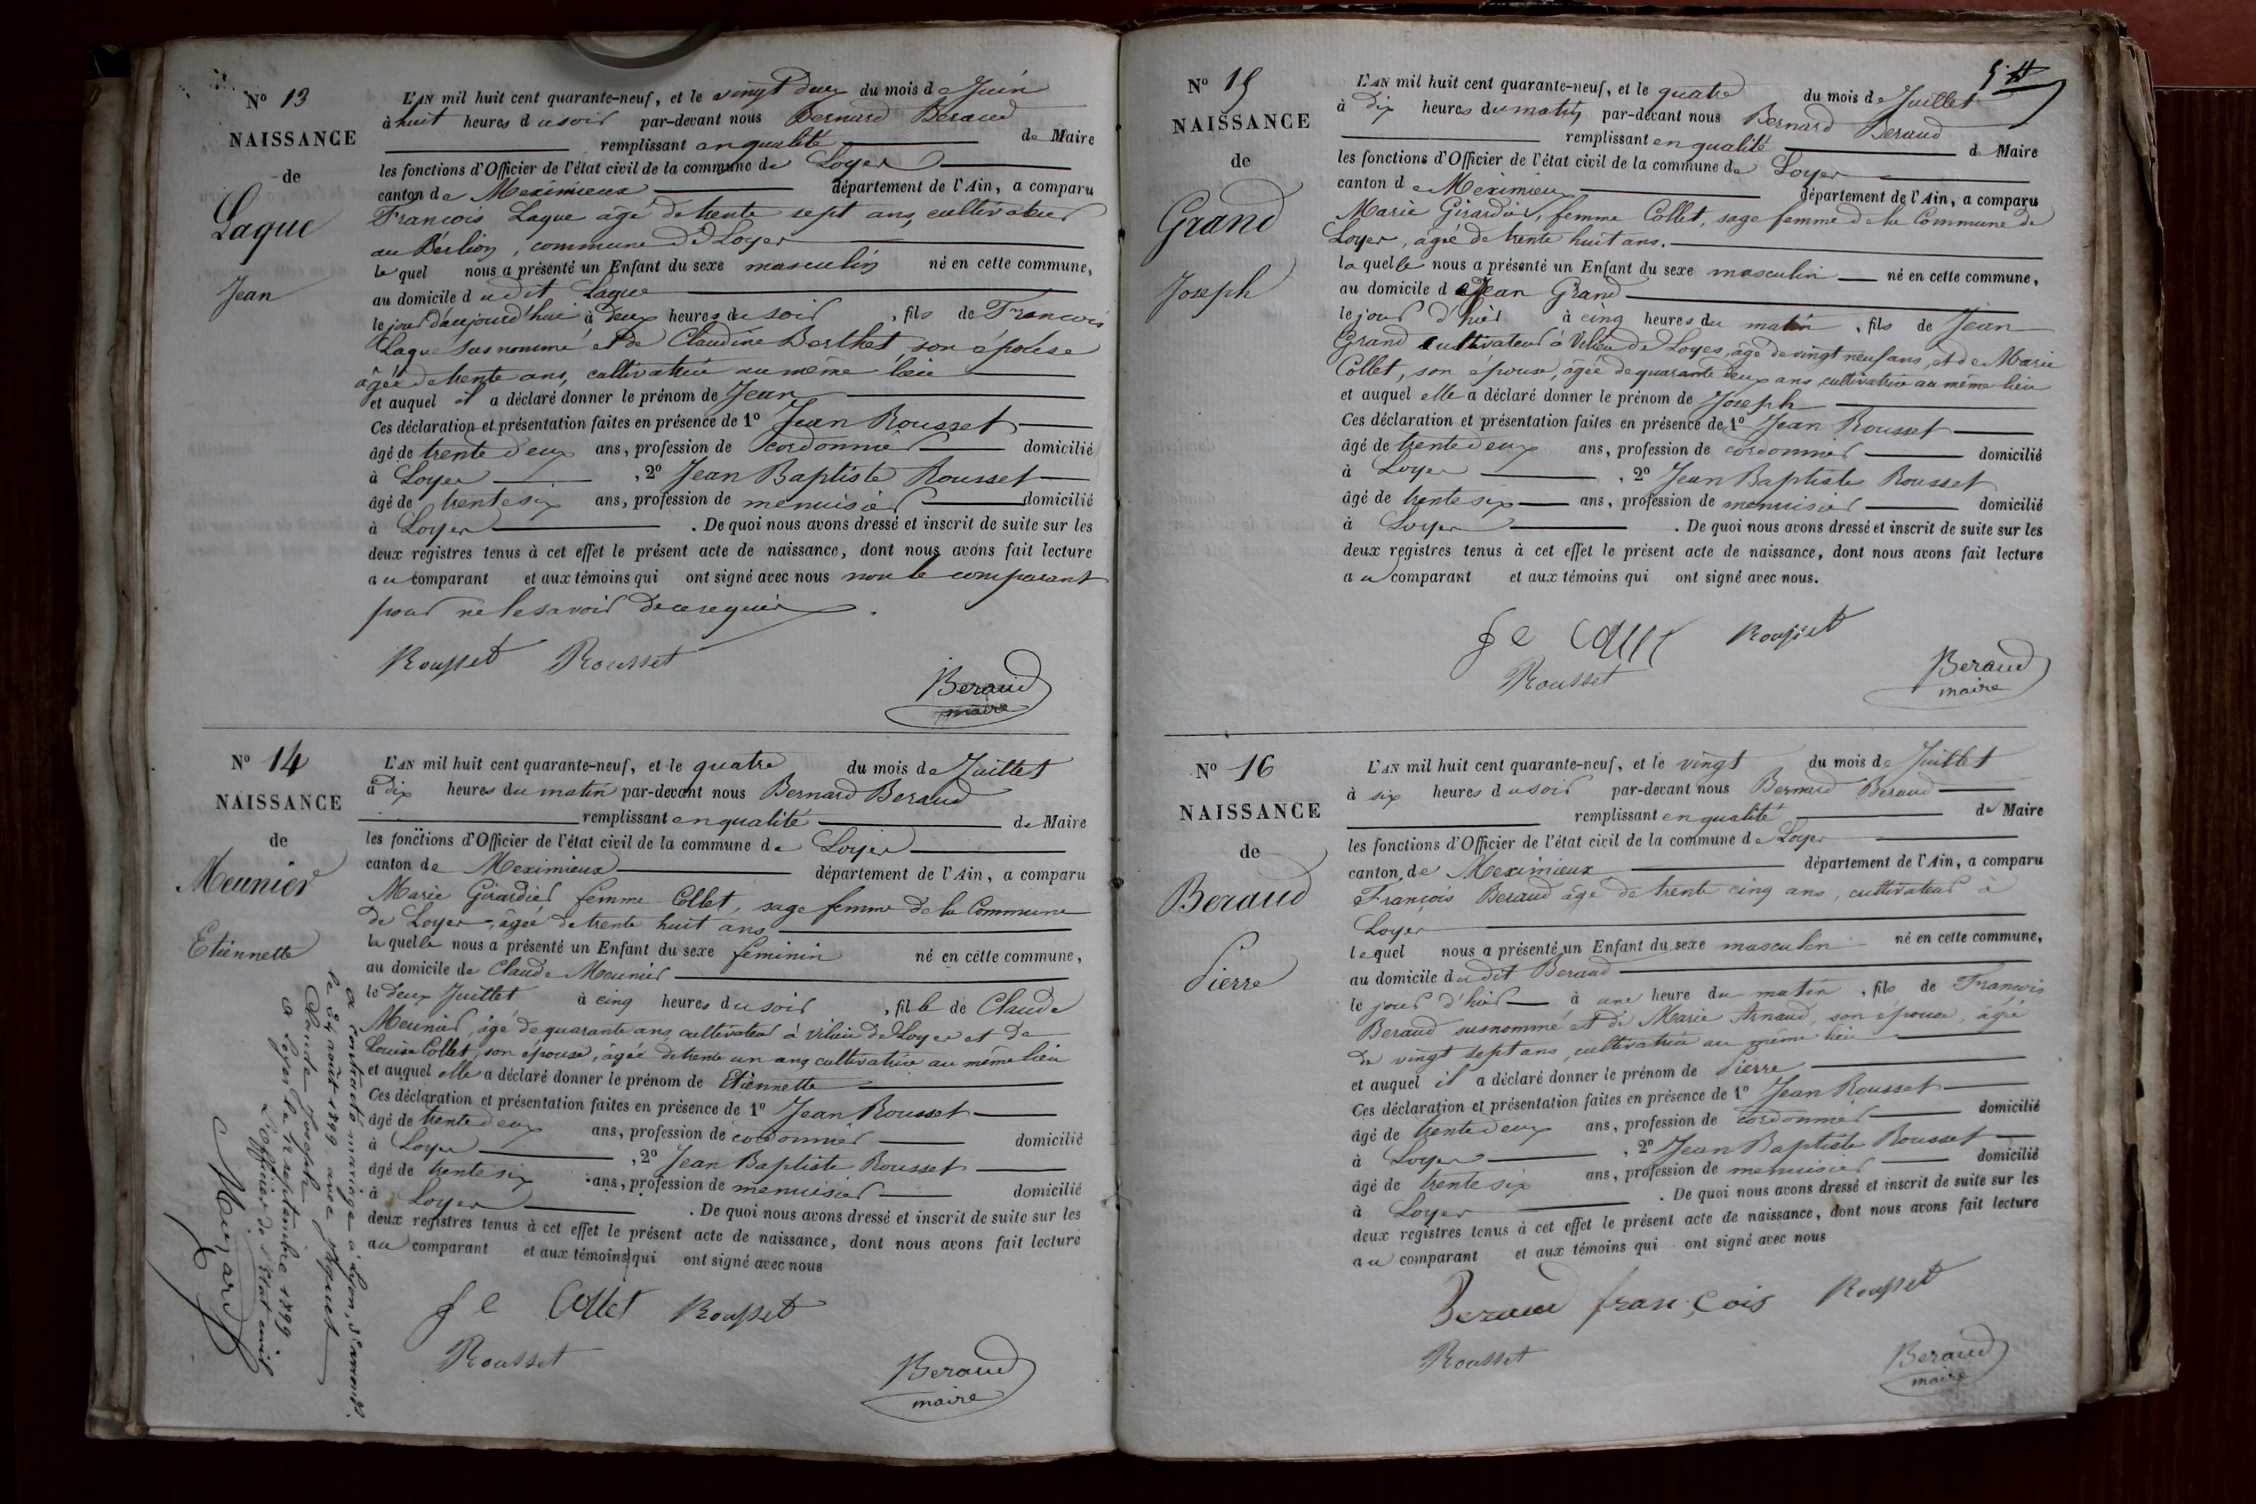 Nº 13
NAISSANCE
de
Laque
Jean
L'AN mil huit cent quarante-neuf, et le vingt deux du mois de Juin
à huit heures du soir par-devant nous Bernard Beraud
remplissant en qualité de Maire
les fonctions d'Officier de l'état civil de la commune de Loyes
canton de Meximieux département de l'Ain, a comparu
François Laque âgé de trente sept ans, cultivateur
au commune de Loyes
lequel nous a présenté un Enfant du sexe masculin né en cette commune,
au domicile dudit Laque
le jour d'aujourd'hui à deux heures du soir, fils de François
Laque susnommé et de Claudine Berthet son épouse
âgée de trente ans, cultivatrice au même lieu
et auquel il a déclaré donner le prénom de Jean
Ces déclaration et présentation faites en présence de 1º Jean Rousset
âgé de trente deux ans, profession de cordonnier domicilié
à Loyes, 2º Jean Baptiste Rousset
âgé de trente six ans, profession de menuisier domicilié
à Loyes. De quoi nous avons dressé et inscrit de suite sur les
deux registres tenus à cet effet le présent acte de naissance, dont nous avons fait lecture
au comparant et aux témoins qui ont signé avec nous non le comparant
pour ne le savoir de ce requis.
Rousset Rousset
Beraud
maire
Nº 14
NAISSANCE
de
Meunier
Etiennette
L'AN mil huit cent quarante-neuf, et le quatre du mois de Juillet
à dix heures du matin par-devant nous Bernard Beraud
remplissant en qualité de Maire
les fonctions d'Officier de l'état civil de la commune de Loyes
canton de Meximieux département de l'Ain, a comparu
Marie Girardier femme Collet, sage femme de la Commune
de Loyes, âgée de trente huit ans
laquelle nous a présenté un Enfant du sexe féminin né en cette commune,
au domicile de Claude Meunier
le deux Juillet à cinq heures du soir, fille de Claude
Meunier, âgé de quarante ans, cultivateur à Vilieu de Loyes et de
Louise Collet, son épouse, âgée de trente un ans, cultivatrice au même lieu
et auquel elle a déclaré donner le prénom de Etiennette
Ces déclaration et présentation faites en présence de 1º Jean Rousset
âgé de trente deux ans, profession de cordonnier domicilié
à Loyes, 2º Jean Baptiste Rousset
âgé de trente six ans, profession de menuisier domicilié
à Loyes. De quoi nous avons dressé et inscrit de suite sur les
deux registres tenus à cet effet le présent acte de naissance, dont nous avons fait lecture
au comparant et aux témoins qui ont signé avec nous
fe Collet Rousset
Rousset
Beraud
maire
a contracté mariage à Lyon, 3e arrondt.
le 24 août 1899 avec Piquet
Claude Joseph
à Loyes le 12 septembre 1899.
L'officier de l'état civil
Nº 15
NAISSANCE
de
Grand
Joseph
L'AN mil huit cent quarante-neuf, et le quatre du mois de Juillet
à dix heures du matin par-devant nous Bernard Beraud
remplissant en qualité de Maire
les fonctions d'Officier de l'état civil de la commune de Loyes
canton de Meximieux département de l'Ain, a comparu
Marie Girardier, femme Collet, sage femme de la Commune de
Loyes, âgée de trente huit ans.
laquelle nous a présenté un Enfant du sexe masculin né en cette commune,
au domicile de Jean Grand
le jour d'hier à cinq heures du matin, fils de Jean
Grand cultivateur à Vilieu de Loyes, âgé de vingt neuf ans, et de Marie
Collet, son épouse, âgée de quarante deux ans cultivatrice au même lieu
et auquel elle a déclaré donner le prénom de Joseph
Ces déclaration et présentation faites en présence de 1º Jean Rousset
âgé de trente deux ans, profession de cordonnier domicilié
à Loyes, 2º Jean Baptiste Rousset
âgé de trente six ans, profession de menuisier domicilié
à Loyes. De quoi nous avons dressé et inscrit de suite sur les
deux registres tenus à cet effet le présent acte de naissance, dont nous avons fait lecture
au comparant et aux témoins qui ont signé avec nous.
fe Collet Rousset
Rousset
Beraud
maire
Nº 16
NAISSANCE
de
Beraud
Pierre
L'AN mil huit cent quarante-neuf, et le vingt du mois de Juillet
à six heures du soir par-devant nous Bernard Beraud
remplissant en qualité de Maire
les fonctions d'Officier de l'état civil de la commune de Loyes
canton de Meximieux département de l'Ain, a comparu
François Beraud âgé de trente cinq ans, cultivateur à
Loyes
lequel nous a présenté un Enfant du sexe masculin né en cette commune,
au domicile dudit Beraud
le jour d'hier à une heure du matin, fils de François
Beraud susnommé et de Marie Arnaud, son épouse, âgée
de vingt sept ans, cultivatrice au même lieu
et auquel il a déclaré donner le prénom de Pierre
Ces déclaration et présentation faites en présence de 1º Jean Rousset
âgé de trente deux ans, profession de cordonnier domicilié
à Loyes, 2º Jean Baptiste Rousset
âgé de trente six ans, profession de menuisier domicilié
à Loyes. De quoi nous avons dressé et inscrit de suite sur les
deux registres tenus à cet effet le présent acte de naissance, dont nous avons fait lecture
au comparant et aux témoins qui ont signé avec nous
Beraud françois Rousset
Rousset
Beraud
maire